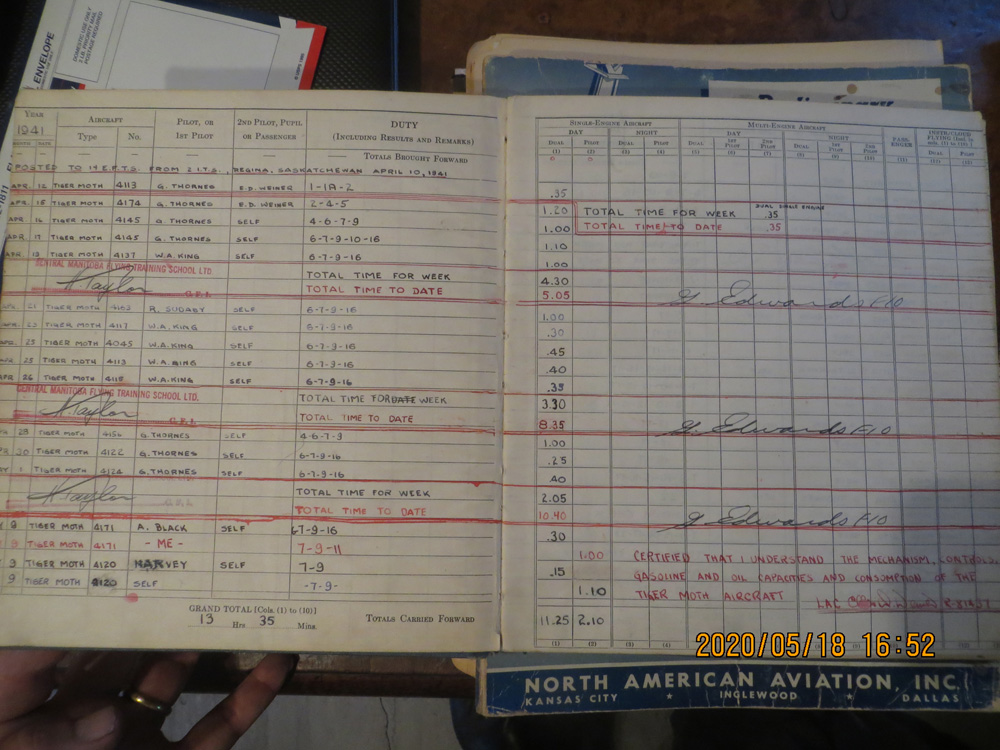 ENVELOPE
DOMESTIC USE ONLY
YEAR AIRCRAFT PILOT, OR 2ND PILOT, PUPIL DUTY
1941 Type No. 1ST PILOT OR PASSENGER (INCLUDING RESULTS AND REMARKS)
MONTH DATE
TOTALS BROUGHT FORWARD
POSTED TO 19 E.F.T.S. FROM 2 I.T.S., REGINA, SASKATCHEWAN APRIL 10, 1941
APR. 12 TIGER MOTH 4113 G. THORNES E.D. WEINER 1-1A-2
APR. 15 TIGER MOTH 4174 G. THORNES E.D. WEINER 2-4-5
APR 16 TIGER MOTH 4145 G. THORNES SELF 4-6-7-9
APR. 17 TIGER MOTH 4145 G. THORNES SELF 6-7-9-10-16
TIGER MOTH 4137 W.A. KING SELF 6-7-9-16
CENTRAL MANITOBA FLYING TRAINING SCHOOL LTD. TOTAL TIME FOR WEEK
Taylor TOTAL TIME TO DATE
21 TIGER MOTH R. SUDABY SELF 6-7-9-16
TIGER MOTH 4117 W.A. KING SELF 6-7-9-16
25 TIGER MOTH 4045 W.A. KING SELF 6-7-9-16
25 TIGER MOTH 4113 W.A. KING SELF 6-7-9-16
APR 26 TIGER MOTH W.A. KING SELF 6-7-9-16
CENTRAL MANITOBA FLYING TRAINING SCHOOL LTD. TOTAL TIME FOR DATE WEEK
Taylor TOTAL TIME TO DATE
28 TIGER MOTH G. THORNES SELF 4-6-7-9
30 TIGER MOTH 4122 G. THORNES SELF 6-7-9-16
1 TIGER MOTH 4124 G. THORNES SELF 6-7-9-16
TOTAL TIME FOR WEEK
Taylor TOTAL TIME TO DATE
9 TIGER MOTH 4171 A. BLACK SELF 7-9-16
9 TIGER MOTH 4171 - ME - 7-9-11
9 TIGER MOTH 4120 HARVEY SELF 7-9
9 TIGER MOTH 4120 SELF -7-9-
GRAND TOTAL [Cols. (1) to (10)]
13 Hrs 35 Mins. TOTALS CARRIED FORWARD
SINGLE-ENGINE AIRCRAFT MULTI-ENGINE AIRCRAFT
DAY NIGHT DAY NIGHT PASSENGER
DUAL PILOT DUAL PILOT DUAL 1ST PILOT 2ND PILOT DUAL 1ST PILOT 2ND PILOT DUAL PILOT
(1) (2) (3) (4) (5) (6) (7) (8) (9) (10) (11) (12) (13)
.35
1.20 TOTAL TIME FOR WEEK DUAL SINGLE ENGINE .35
1.00 TOTAL TIME TO DATE .35
1.10
1.00
4.30
5.05 G. Edwards F/O
1.00
.30
.45
.40
.35
3.30
8.35 G. Edwards F/O
1.00
.25
.40
2.05
10.40 G. Edwards F/O
.30
1.00 CERTIFIED THAT I UNDERSTAND THE MECHANISM, CONTROLS
.15 GASOLINE AND OIL CAPACITIES AND CONSUMPTION OF THE
1.10 TIGER MOTH AIRCRAFT
LAC
11.25 2.10
(1) (2) (3) (4) (5) (6) (7) (8) (9) (10) (11) (12) (13)
2020/05/18 16:52
NORTH AMERICAN AVIATION, INC.
KANSAS CITY ★ INGLEWOOD ★ DALLAS